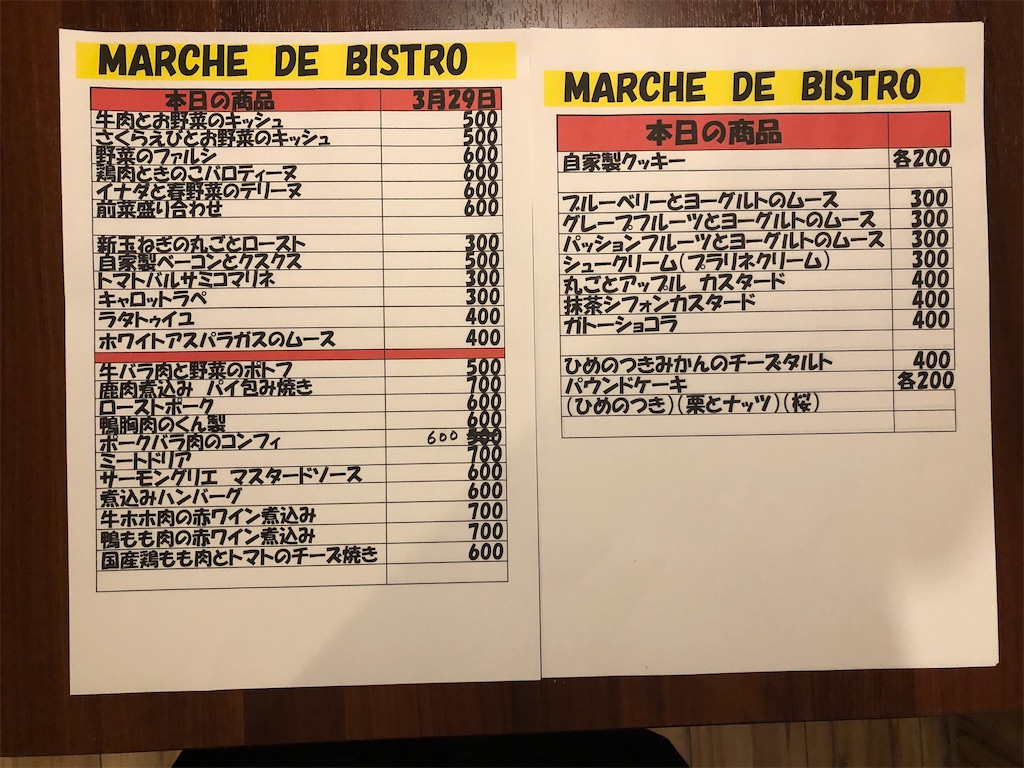 MARCHE DE BISTRO
本日の商品 3月29日
牛肉とお野菜のキッシュ 500
さくらえびとお野菜のキッシュ 500
野菜のファルシ 600
鶏肉ときのこバロティーヌ 600
イナダと春野菜のテリーヌ 600
前菜盛り合わせ 600
新玉ねぎの丸ごとロースト 300
自家製ベーコンとクスクス 500
トマトバルサミコマリネ 300
キャロットラペ 300
ラタトゥイユ 400
ホワイトアスパラガスのムース 400
牛バラ肉と野菜のポトフ 500
鹿肉煮込み パイ包み焼き 700
ローストポーク 600
鴨胸肉のくん製 600
ポークバラ肉のコンフィ 600
ミートドリア 700
サーモングリエ マスタードソース 600
煮込みハンバーグ 600
牛ホホ肉の赤ワイン煮込み 700
鴨もも肉の赤ワイン煮込み 700
国産鶏もも肉とトマトのチーズ焼き 600
MARCHE DE BISTRO
本日の商品
自家製クッキー 各200
ブルーベリーとヨーグルトのムース 300
グレープフルーツとヨーグルトのムース 300
パッションフルーツとヨーグルトのムース 300
シュークリーム(プラリネクリーム) 300
丸ごとアップル カスタード 400
抹茶シフォンカスタード 400
ガトーショコラ 400
ひめのつきみかんのチーズタルト 400
パウンドケーキ 各200
(ひめのつき)(栗とナッツ)(桜)